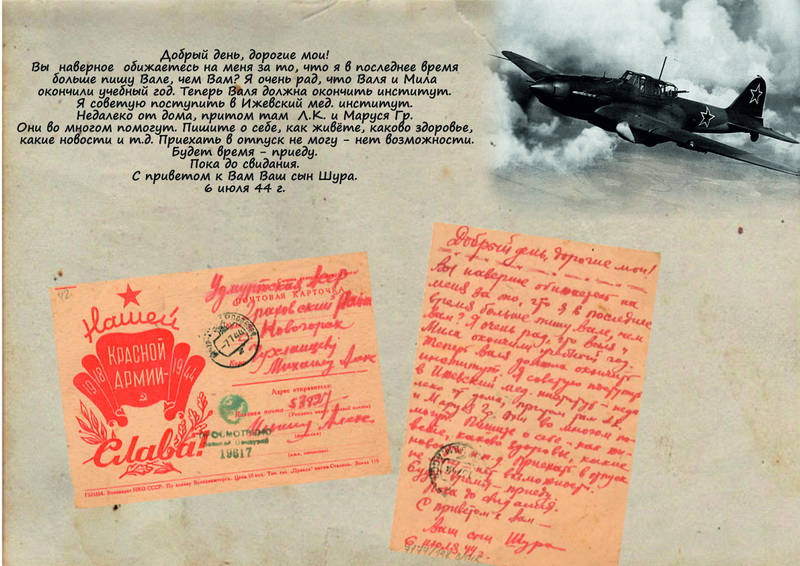 Добрый день, дорогие мои!
Вы наверное обижаетесь на меня за то, что я в последнее время
больше пишу Вале, чем Вам? Я очень рад, что Валя и Мила
окончили учебный год. Теперь Валя должна окончить институт.
Я советую поступить в Ижевский мед. институт.
Недалеко от дома, притом там Л.К. и Маруся Гр.
Они во многом помогут. Пишите о себе, как живёте, каково здоровье,
какие новости и т.д. Приехать в отпуск не могу - нет возможности.
Будет время - приеду.
Пока до свидания.
С приветом к Вам Ваш сын Шура.
6 июля 44 г.
Удмуртская АССР
ПОЧТОВАЯ КАРТОЧКА
Граховский район
Новогорск
Михаилу Алек
Нашей
КРАСНОЙ
АРМИИ-
1918 1944
Слава!
Адрес отправителя:
Полевая почта 53925
ПРОСМОТРЕНО
Военной Цензурой
19617
Добрый день, дорогие мои!
Вы наверное обижаетесь на
меня за то, что я в последнее
время больше пишу Вале, чем
Вам? Я очень рад, что Валя и
Мила окончили учебный год.
Теперь Валя должна окончить
институт. Я советую поступить
в Ижевский мед. институт - неда
леко от дома, притом там Л.К.
и Маруся Г. Они во многом по-
могут. Пишите о себе - как жи-
вёте, каково здоровье, какие
новости и т.д. Приехать в отпуск
не могу - нет возможности.
Будет время - приеду.
Пока до свидания.
С приветом к Вам -
Ваш сын Шура
6 июля 44 г.